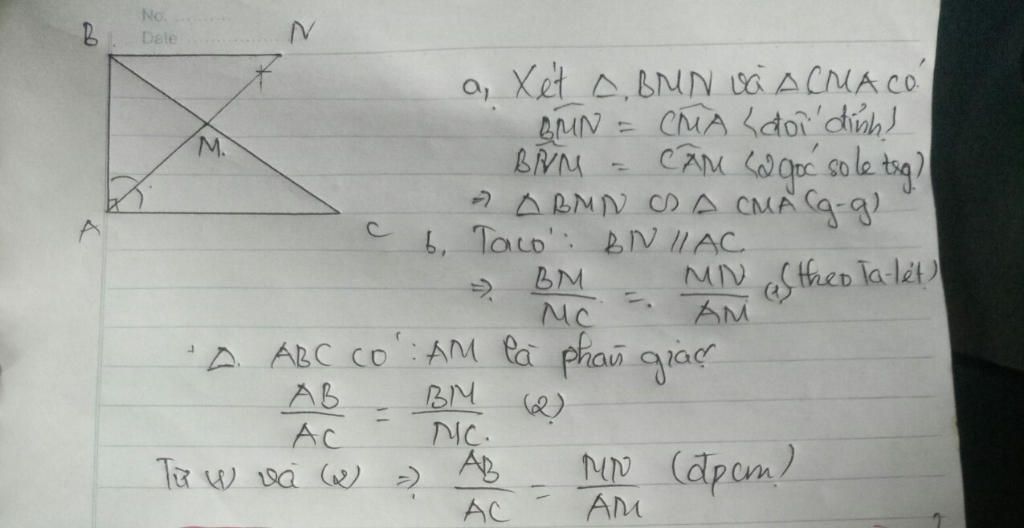 No.
Date
B N
M.
A C
a, Xét △ BMN và △ CMA có
BMN̂ = CMÂ (đối đỉnh)
BNM̂ = CAM̂ (2 góc so le trg)
=> △ BMN ∽ △ CMA (g-g)
b, Ta có: BN // AC
=> BM/MC = MN/AM (1) (theo Ta-lét)
△ ABC có: AM là phân giác
AB/AC = BM/MC (2)
Từ (1) và (2) => AB/AC = MN/AM (đpcm)